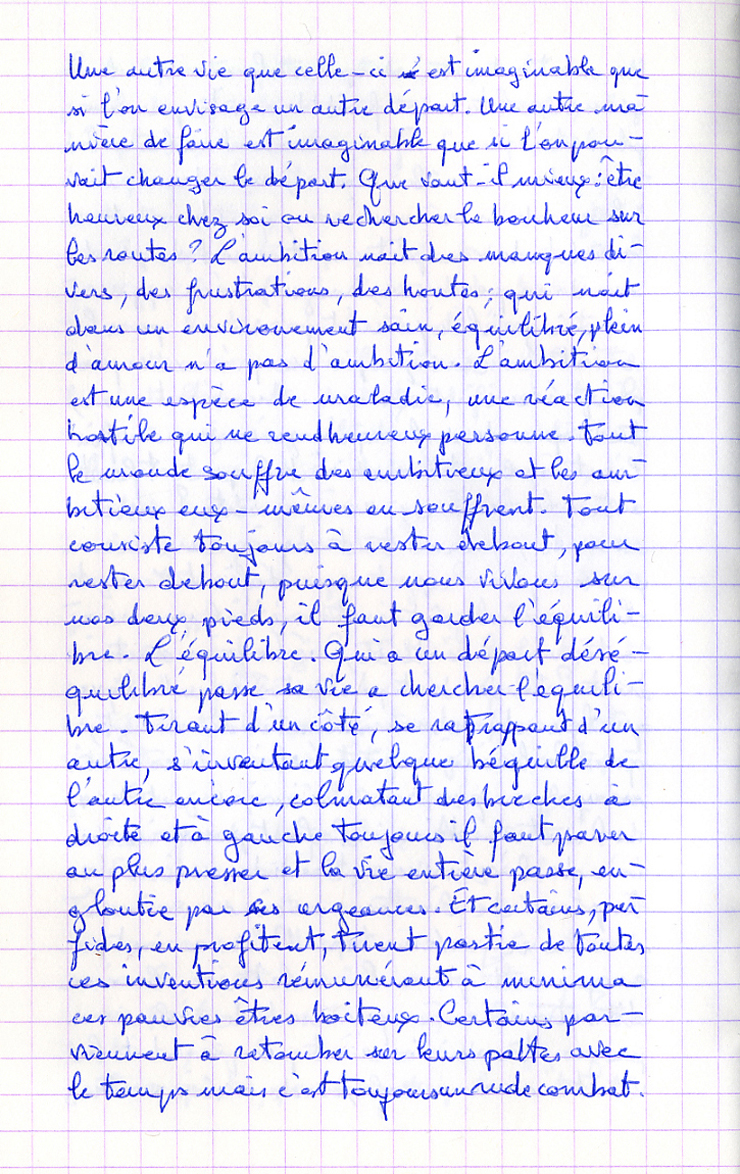 Une autre vie que celle-ci n'est imaginable que
si l'on envisage un autre départ. Une autre ma
nière de faire est imaginable que si l'on pou-
vait changer le départ. Que vaut-il mieux: être
heureux chez soi ou rechercher le bonheur sur
les routes ? L'ambition naît des manques di-
vers, des frustrations, des hontes; qui naît
dans un environement sain, équilibré, plein
d'amour n'a pas d'ambition. L'ambition
est une espèce de maladie, une réaction
hostile qui ne rend heureux personne. Tout
le monde souffre des ambitieux et les am-
bitieux eux-mêmes en souffrent. Tout
consiste toujours à rester debout, pour
rester debout, puisque nous vivons sur
nos deux pieds, il faut garder l'équili-
bre. L'équilibre. Qui a un départ désé-
quilibré passe sa vie a chercher l'équili-
bre. Tirant d'un côté, se rattrappant d'un
autre, s'inventant quelque béquille de
l'autre encore, colmatant des brèches à
droite et à gauche toujours il faut parer
au plus presser et la vie entière passe, en-
gloutie par ses urgeances. Et certains, per
fides, en profitent, tirent partie de toutes
ces inventions rémunérant à minima
ces pauvres êtres boiteux. Certains par-
viennent à retomber sur leurs pattes avec
le temps mais c'est toujours un rude combat.